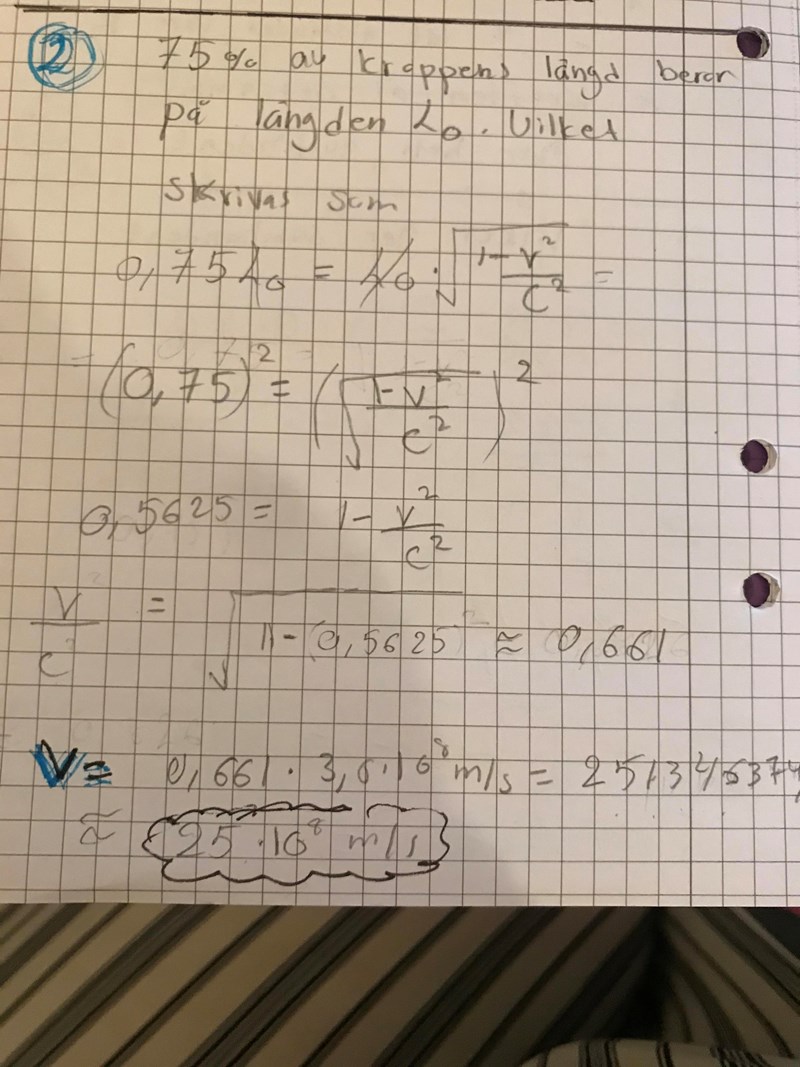 2 75% av kroppens längd beror
på längden L₀. Vilket
skrivas som
0,75 L₀ = L₀ · √(1 - v²/c²) =
= (0,75)² = (√(1 - v²/c²))²
0,5625 = 1 - v²/c²
v/c = √(1 - (0,5625) ≈ 0,661
V = 0,661 · 3,0 · 10⁸ m/s =
≈ 25 · 10⁸ m/s